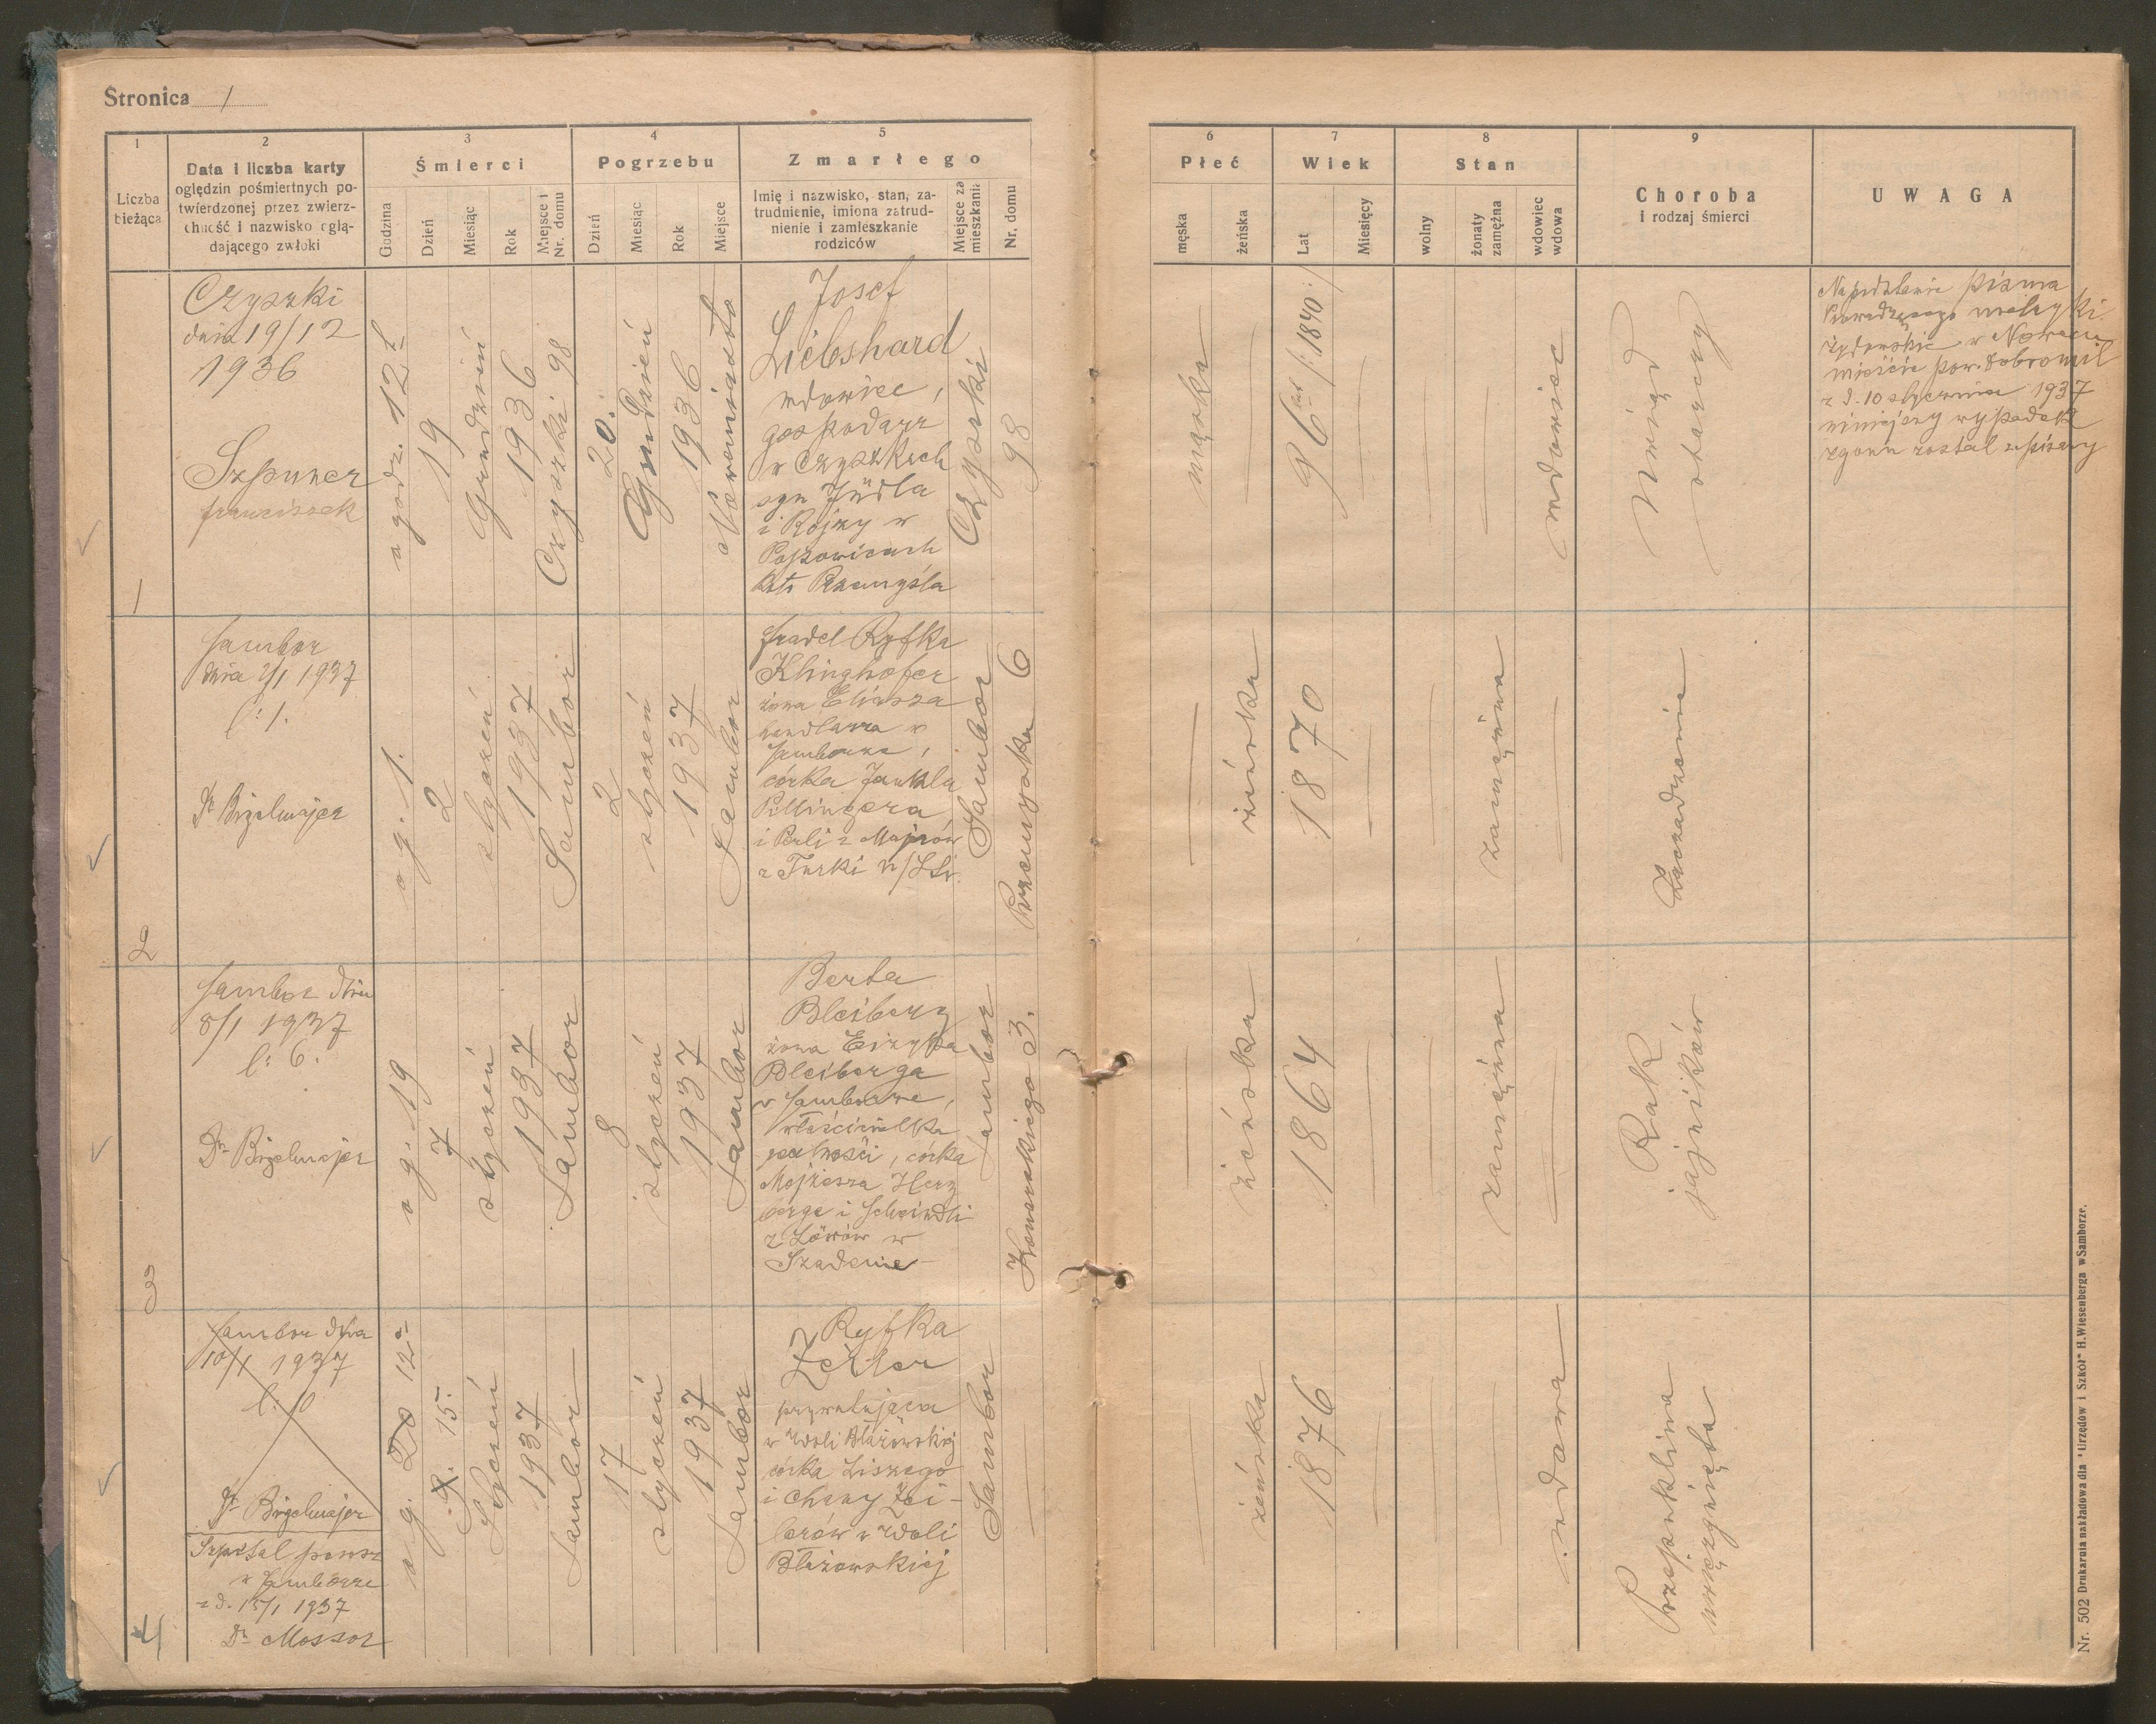 Stronica 1
1
Liczba
bieżąca
2
Data i liczba karty
oględzin pośmiertnych po-
twierdzonej przez zwierz-
chność i nazwisko oglą-
dającego zwłoki
3
Śmierci
Godzina
Dzień
Miesiąc
Rok
Miejsce i
Nr. domu
4
Pogrzebu
Dzień
Miesiąc
Rok
Miejsce
5
Zmarłego
Imię i nazwisko, stan, za-
trudnienie, imiona zatrud-
nienie i zamieszkanie
rodziców
Miejsce za
mieszkania
Nr. domu
6
Płeć
męska
żeńska
7
Wiek
Lat
Miesięcy
8
Stan
wolny
żonaty
zamężna
wdowiec
wdowa
9
Choroba
i rodzaj śmierci
UWAGA
1
Czyszki
dnia 19/12
1936
Szpuner
franciszek
o godz. 12
19
Grudzień
1936
Czyszki 98
20.
Grudzień
1936
Nowemiasto
Josef
Liebshard
wdowiec,
gospodarz
w Czyszkach
syn Jüdla
i Rojzy w
Popowicach
koło Przemyśla
Czyszki
98
męska
96 lat /:1840:/
wdowiec
Uwiąd
starczy
Na podstawie pisma
Prowadzącego metryki
żydowskie w Nowem
mieście pow. Dobromil
z d. 10 stycznia 1937
niniejszy wypadek
zgonu został wpisany
2
Sambor
dnia 2/1 1937
l: 1.
Dr Brigelmajer
o g. 1.
2
styczeń
1937
Sambor
2
styczeń
1937
Sambor
Fradel Ryfka
Klinghofer
żona Eliasza
handlarza w
Samborze,
córka Jankla
Pillingera
i Perli z Majerów
z Turki n/Str.
Sambor
Przemyska 6
żeńska
1870
zamężna
Zaczadzenie
3
Sambor dnia
8/1 1937
l: 6.
Dr Brigelmajer
o g. 19
7
styczeń
1937
Sambor
8
styczeń
1937
Sambor
Berta
Bleiberg
żona Eizyka
Bleiberga
w Samborze,
właścicielka
realności, córka
Mojżesza Herz
berga i Scheindli
z Löwów w
Sambor
3.
żeńska
1864
zamężna
Rak
jajników
4
Sambor dnia
10/1 1937
l. 10
Dr Brigelmajer
Szpital powsz
w Samborze
z d. 15/1 1937
Dr Mossor
o g. 20 12
9. 15.
Styczeń
1937
Sambor
17
styczeń
1937
Sambor
Ryfka
Zeiler
w Woli Błażowskiej
córka Liszego
i Chany Zei-
lerów w Woli
Błażowskiej
Sambor
żeńska
1876
wdowa
Przepuklina
uwięźnięta
Nr. 502 Drukarnia nakładowa dla "Urzędów i Szkół" H.Wiesenberga w Samborze.